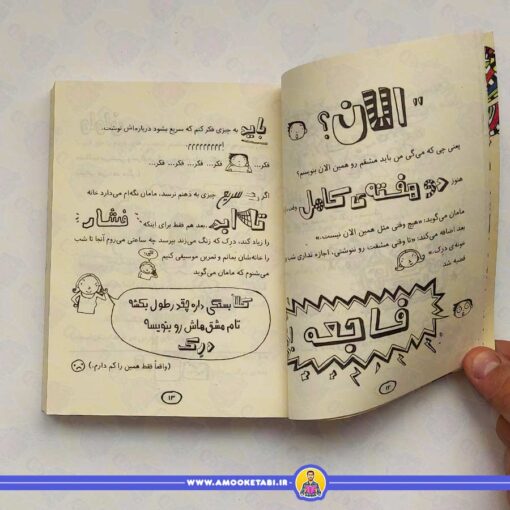 "الان؟
یعنی چی که می‌گی من باید مشقم رو همین الان بنویسم؟
هنوز
دو هفته‌ی کامل
مامان می‌گوید: «هیچ وقتی مثل همین الان نیست.»
بعد اضافه می‌کند: «تا وقتی مشقت رو ننوشتی، اجازه نداری شب
خونه‌ی درک
قضیه شد
فاجعه
۱۲
باید به چیزی فکر کنم که سریع بشود درباره‌اش نوشت.
فکر... فکر... فکر... فکر...
اگر سریع چیزی به ذهنم نرسد، مامان نگه‌ام می‌دارد خانه
تا ابد. بعد هم فقط برای اینکه فشار
را زیاد کند، درک که زنگ می‌زند بپرسد چه ساعتی می‌روم آنجا تا شب
خانه‌شان بمانم و تمرین موسیقی کنیم
می‌شنوم که مامان می‌گوید
کلاً بستگی داره چقدر طول بکشه
تام مشق‌هاش رو بنویسه
درک
(واقعاً فقط همین را کم دارم.)
۱۳
WWW.AMOOKETABI.IR